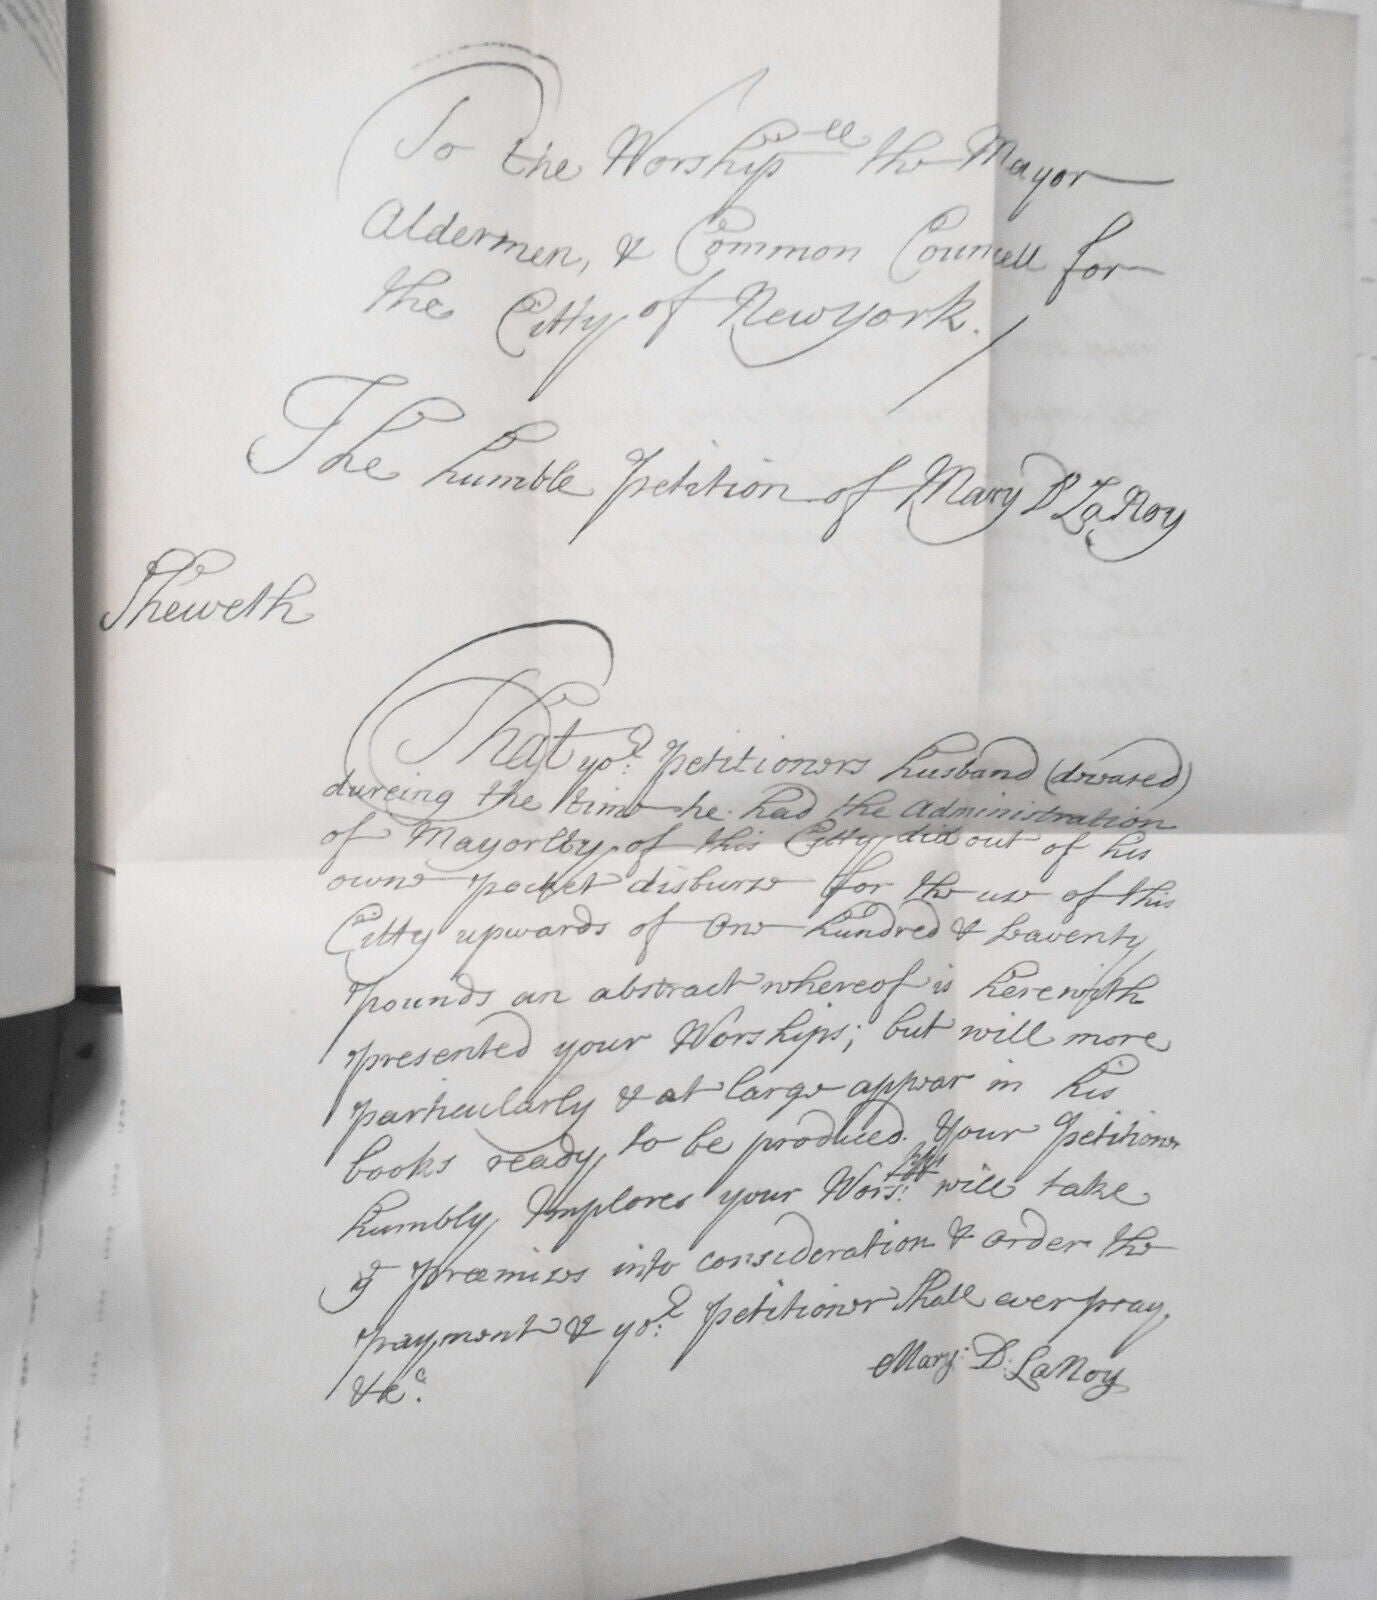 To the Worship^ll the Mayor
Aldermen, & Common Councell for
the Citty of Newyork.
The humble Petition of Mary D LaNoy
Sheweth
That yo:r Petitioners husband (deceased)
dureing the time he had the Administration
of Mayorlty of this Citty did out of his
owne pocket disburse for the use of this
Citty upwards of One hundred & Seaventy
pounds an abstract whereof is herewith
presented your Worships; but will more
particularly & at large appear in his
books ready to be produced. Your Petitioner
humbly Implores your Wors:pps will take
ye premises into consideration & order the
payment & yo:r Petitioner shall ever pray
&c.
Mary: D: LaNoy